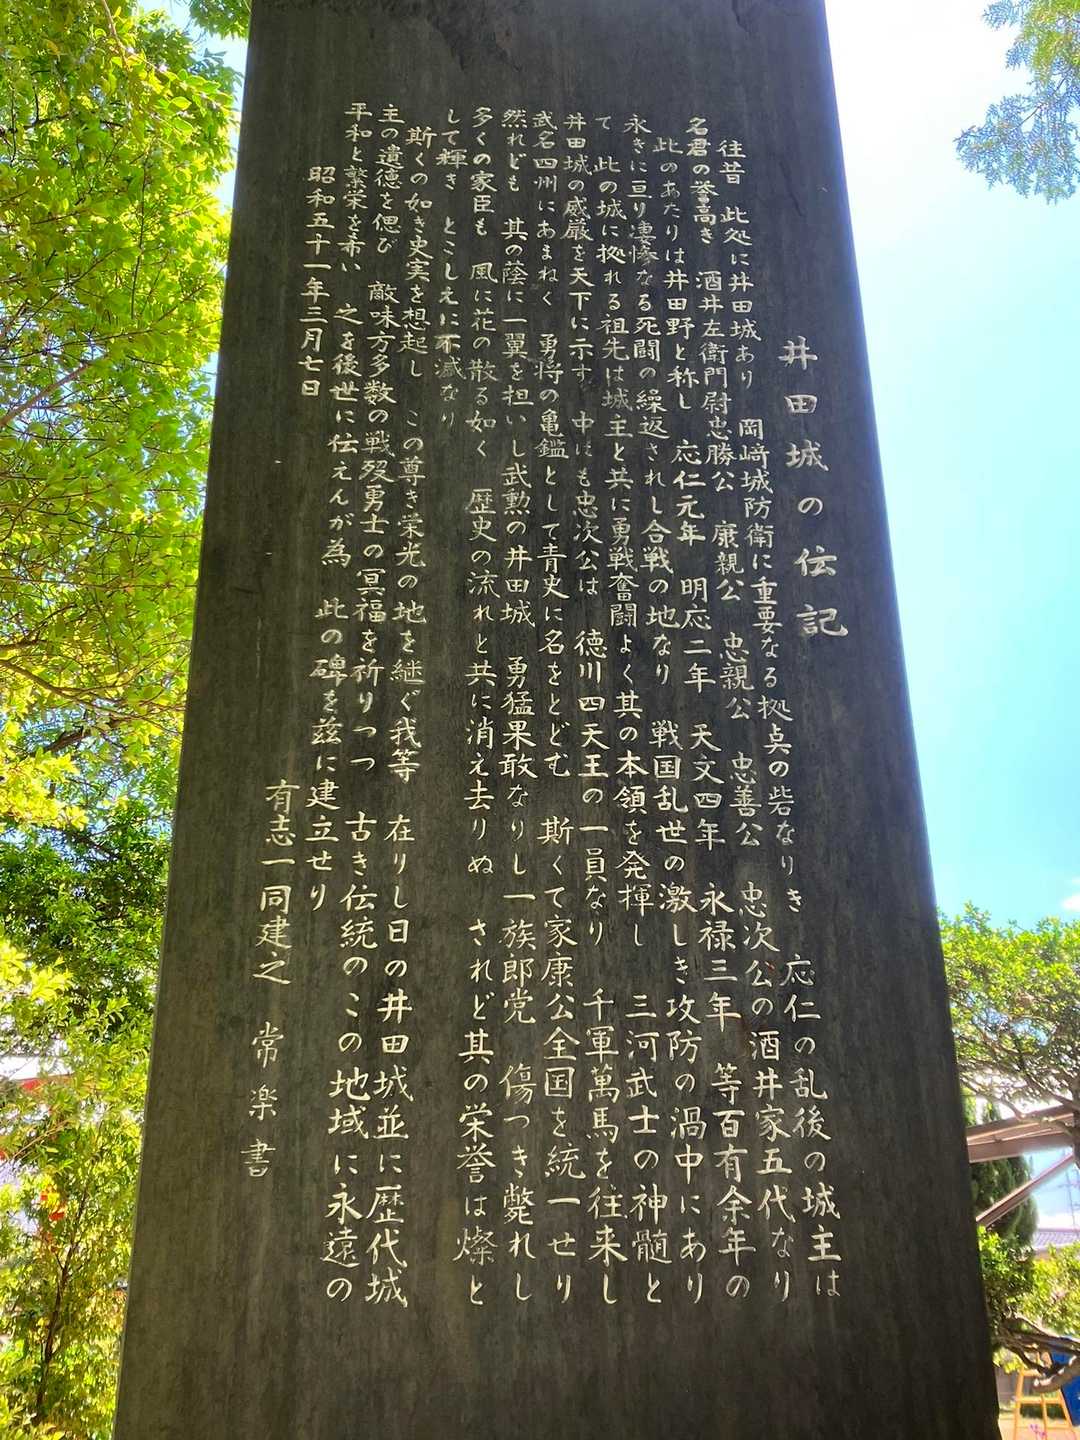 井田城の伝記
往昔 此処に井田城あり 岡﨑城防衛に重要なる拠点の砦なりき 応仁の乱後の城主は
名君の誉高き 酒井左衛門尉忠勝公 康親公 忠親公 忠善公 忠次公の酒井家五代なり
此のあたりは井田野と称し 応仁元年 明応二年 天文四年 永禄三年 等百有余年の
永きに亘り凄惨なる死闘の繰返されし合戦の地なり 戦国乱世の激しき攻防の渦中にあり
て 此の城に拠れる祖先は城主と共に勇戦奮闘よく其の本領を発揮し 三河武士の神髄と
井田城の威厳を天下に示す 中にも忠次公は 徳川四天王の一員なり 千軍萬馬を往来し
武名四州にあまねく 勇将の亀鑑として青史に名をとどむ 斯くて家康公全国を統一せり
然れども 其の蔭に一翼を担いし武勲の井田城 勇猛果敢なりし一族郎党 傷つき斃れし
多くの家臣も 風に花の散る如く 歴史の流れと共に消え去りぬ されど其の栄誉は燦と
して輝き とこしえに不滅なり
斯くの如き史実を想起し この尊き栄光の地を継ぐ我等 在りし日の井田城並に歴代城
主の遺徳を偲び 敵味方多数の戦歿勇士の冥福を祈りつつ 古き伝統のこの地域に永遠の
平和と繁栄を希い 之を後世に伝えんが為 此の碑を茲に建立せり
昭和五十一年三月七日
有志一同建之 常楽書